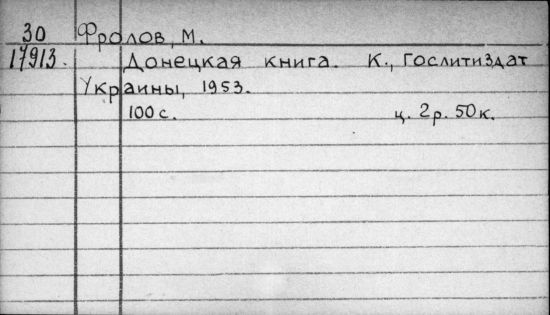 30 Фролов, М.
17913. Донецкая книга. К., Гослитиздат
Украины, 1953.
100 с. ц. 2р. 50к.